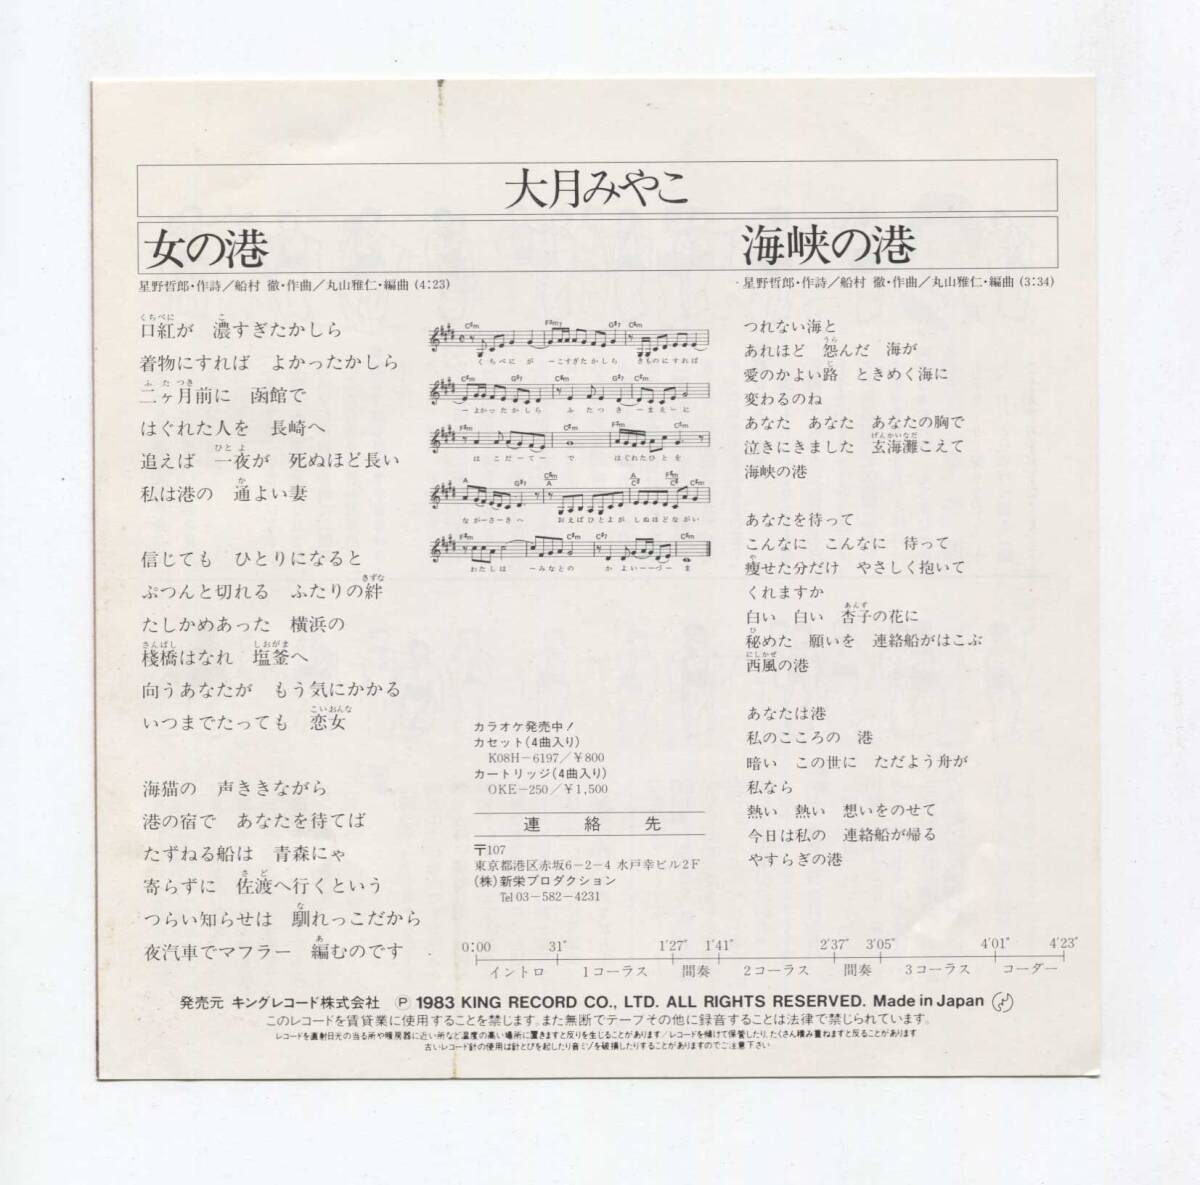 大月みやこ
女の港
星野哲郎・作詩／船村 徹・作曲／丸山雅仁・編曲 (4:23)
口紅が　濃すぎたかしら
着物にすれば　よかったかしら
二ヶ月前に　函館で
はぐれた人を　長崎へ
追えば　一夜が　死ぬほど長い
私は港の　通よい妻
信じても　ひとりになると
ぷつんと切れる　ふたりの絆
たしかめあった　横浜の
棧橋はなれ　塩釜へ
向うあなたが　もう気にかかる
いつまでたっても　恋女
海猫の　声ききながら
港の宿で　あなたを待てば
たずねる船は　青森にゃ
寄らずに　佐渡へ行くという
つらい知らせは　馴れっこだから
夜汽車でマフラー　編むのです
くちべにが－こすぎたかしら　きものにすれば
－よかったかしら　ふたつき－まえ－に
はこだ－て－で　はぐれたひとを
なが－さ－きへ　おえばひとよが　しぬほどながい
わたしは－みなとの　かよい－－づ－ま
カラオケ発売中！
カセット(4曲入り)
K08H－6197／￥800
カートリッジ(4曲入り)
OKE－250／￥1,500
連絡先
〒107
東京都港区赤坂6－2－4 水戸幸ビル2F
(株)新栄プロダクション
Tel 03－582－4231
海峡の港
星野哲郎・作詩／船村 徹・作曲／丸山雅仁・編曲 (3:34)
つれない海と
あれほど　怨んだ　海が
愛のかよい路　ときめく海に
変わるのね
あなた　あなた　あなたの胸で
泣きにきました　玄海灘こえて
海峡の港
あなたを待って
こんなに　こんなに　待って
痩せた分だけ　やさしく抱いて
くれますか
白い　白い　杏子の花に
秘めた　願いを　連絡船がはこぶ
西風の港
あなたは港
私のこころの　港
暗い　この世に　ただよう舟が
私なら
熱い　熱い　想いをのせて
今日は私の　連絡船が帰る
やすらぎの港
0:00　31″　1′27″　1′41″　2′37″　3′05″　4′01″　4′23″
イントロ　1コーラス　間奏　2コーラス　間奏　3コーラス　コーダー
発売元 キングレコード株式会社 Ⓟ 1983 KING RECORD CO., LTD. ALL RIGHTS RESERVED. Made in Japan
このレコードを賃貸業に使用することを禁じます。また無断でテープその他に録音することは法律で禁じられています。
レコードを直射日光の当る所や暖房器に近い所など温度の高い場所に置きますと反りを生じることがあります／レコードを傾けて保管したり、たくさん積み重ねますと反ることがあります
古いレコード針の使用は針とびを起したり音ミゾを破損したりすることがありますのでご注意下さい